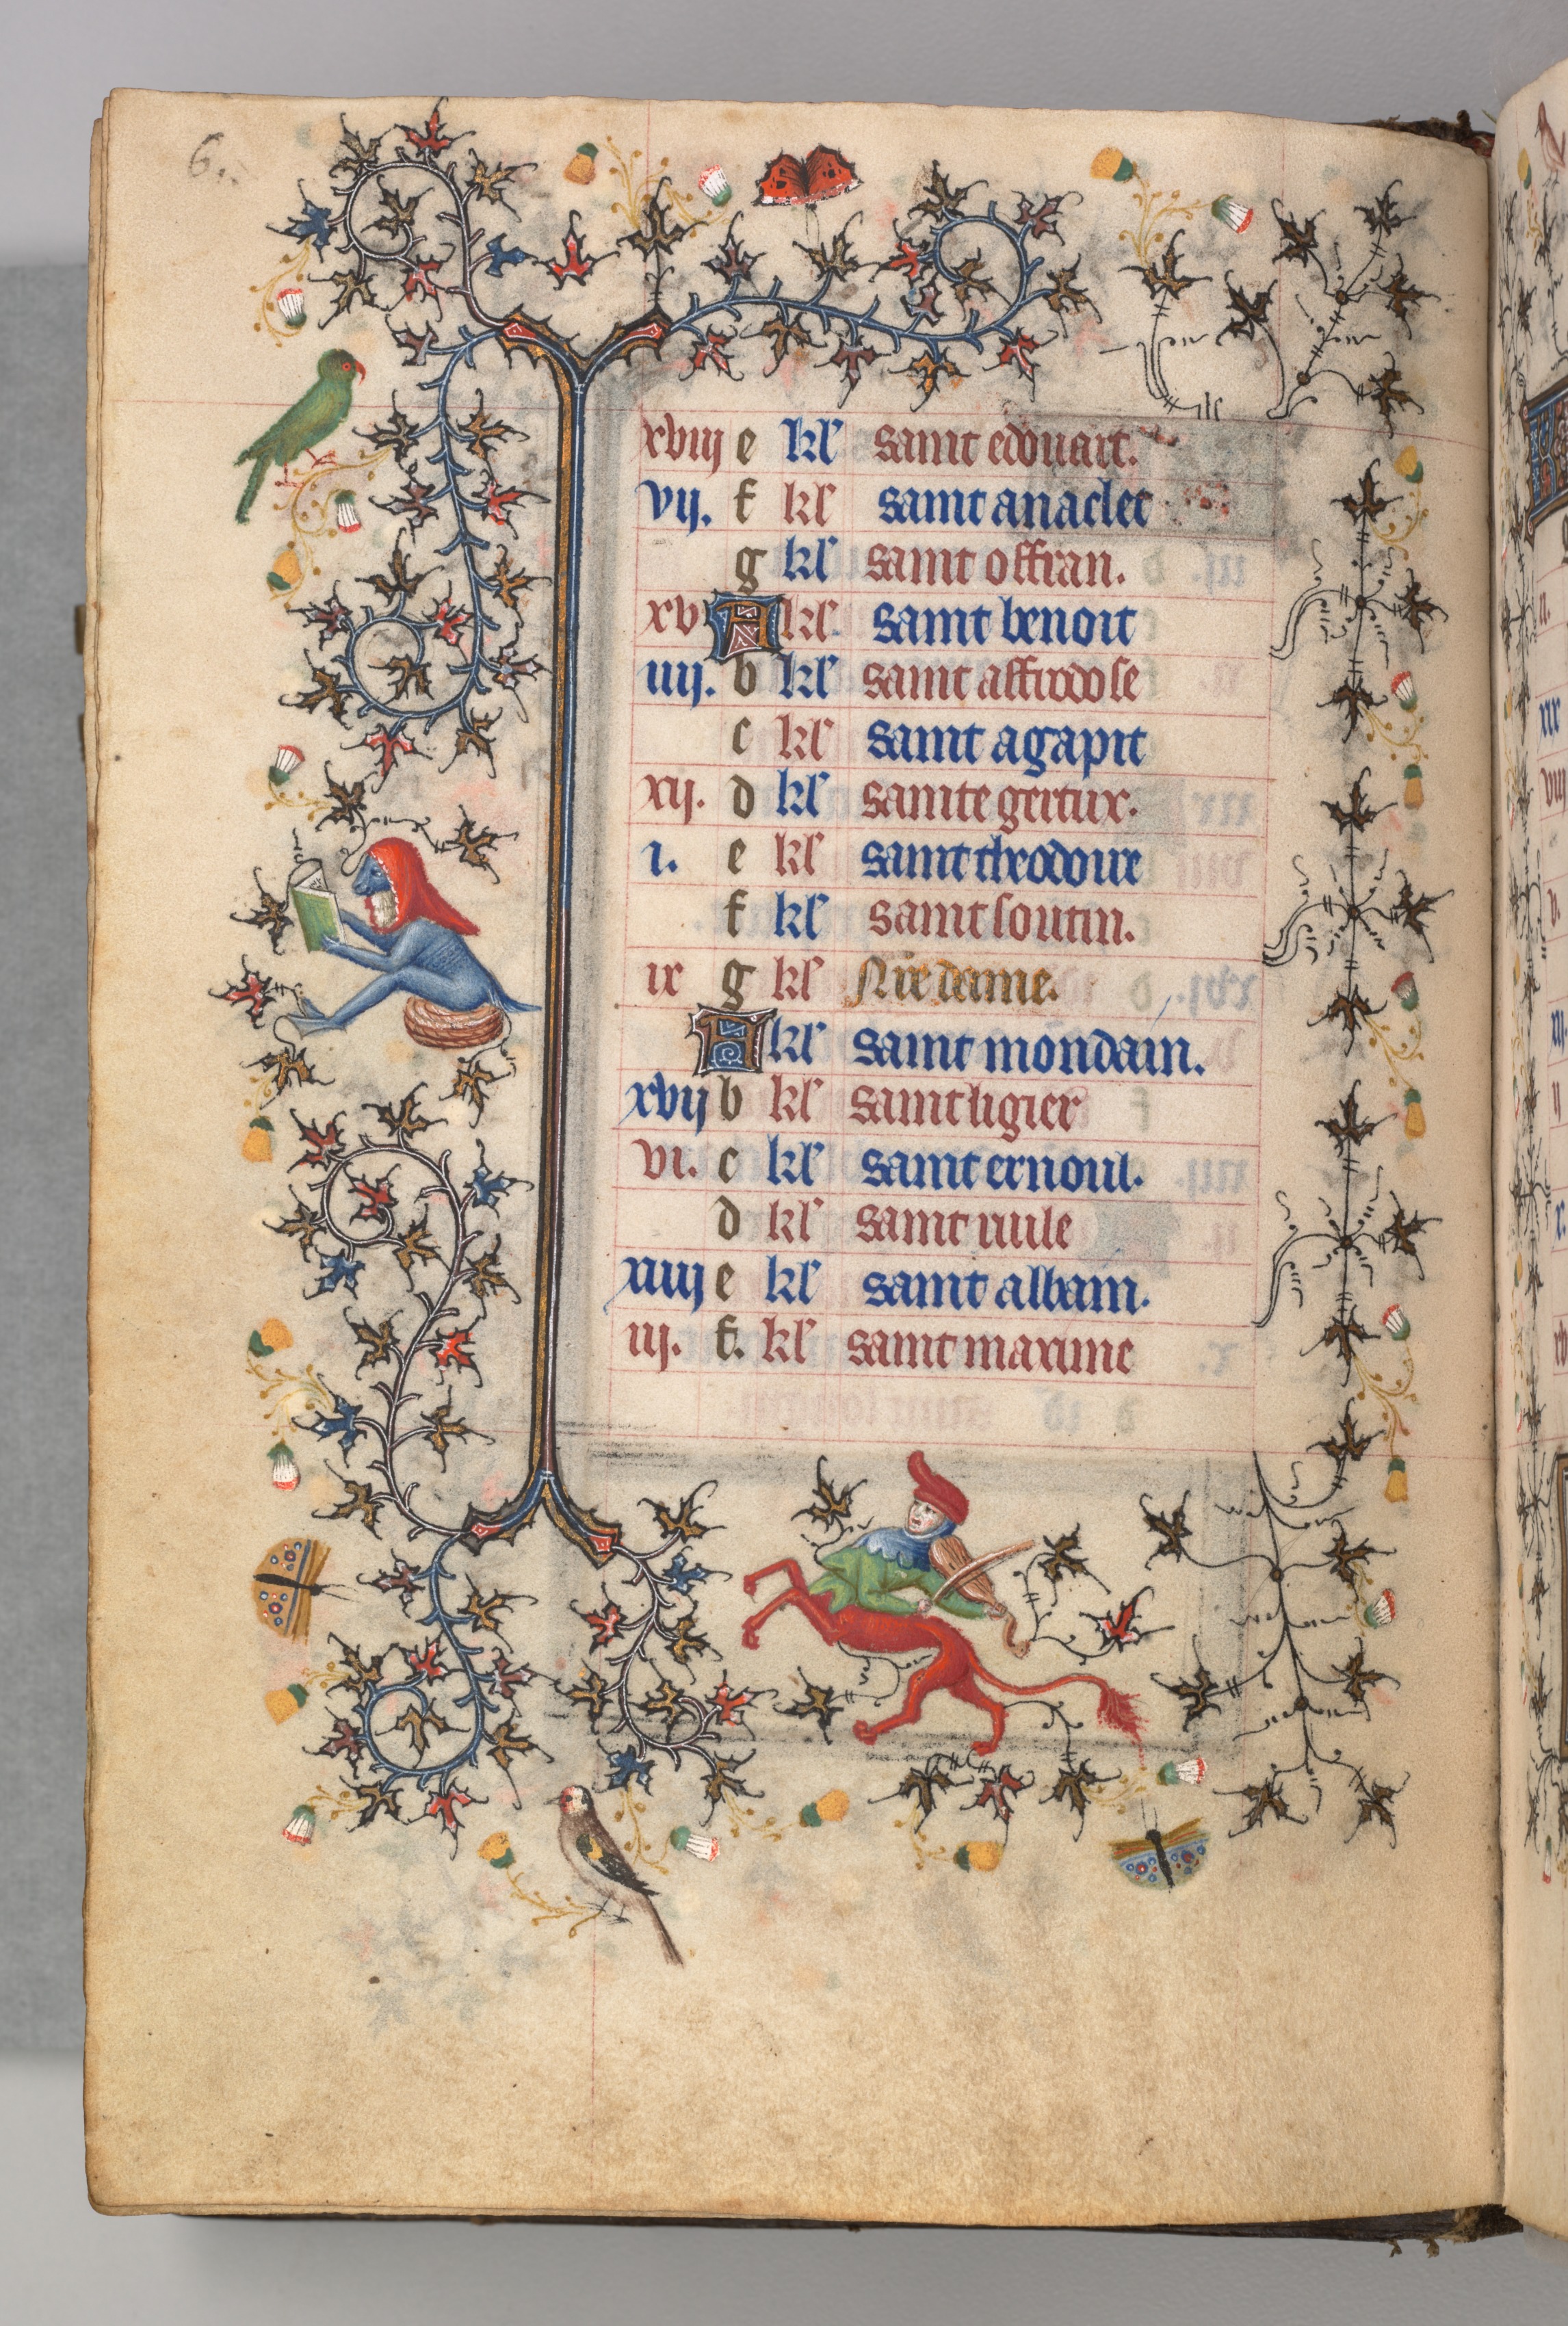 6.
xviij e kl' saint edouart.
vij. f kl' saint anaclet
g kl' saint offran.
xv A kl' saint benoit
iiij. b kl' saint affrodose
c kl' saint agapit
xij. d kl' sainte gertrix.
i. e kl' saint theodoire
f kl' saint soutin.
ix g kl' Nre dame.
A kl' saint mondain.
xvij b kl' saint ligier
vi. c kl' saint ernoul.
d kl' saint rule
xiiij e kl' saint albain.
iij. f. kl' saint maxime